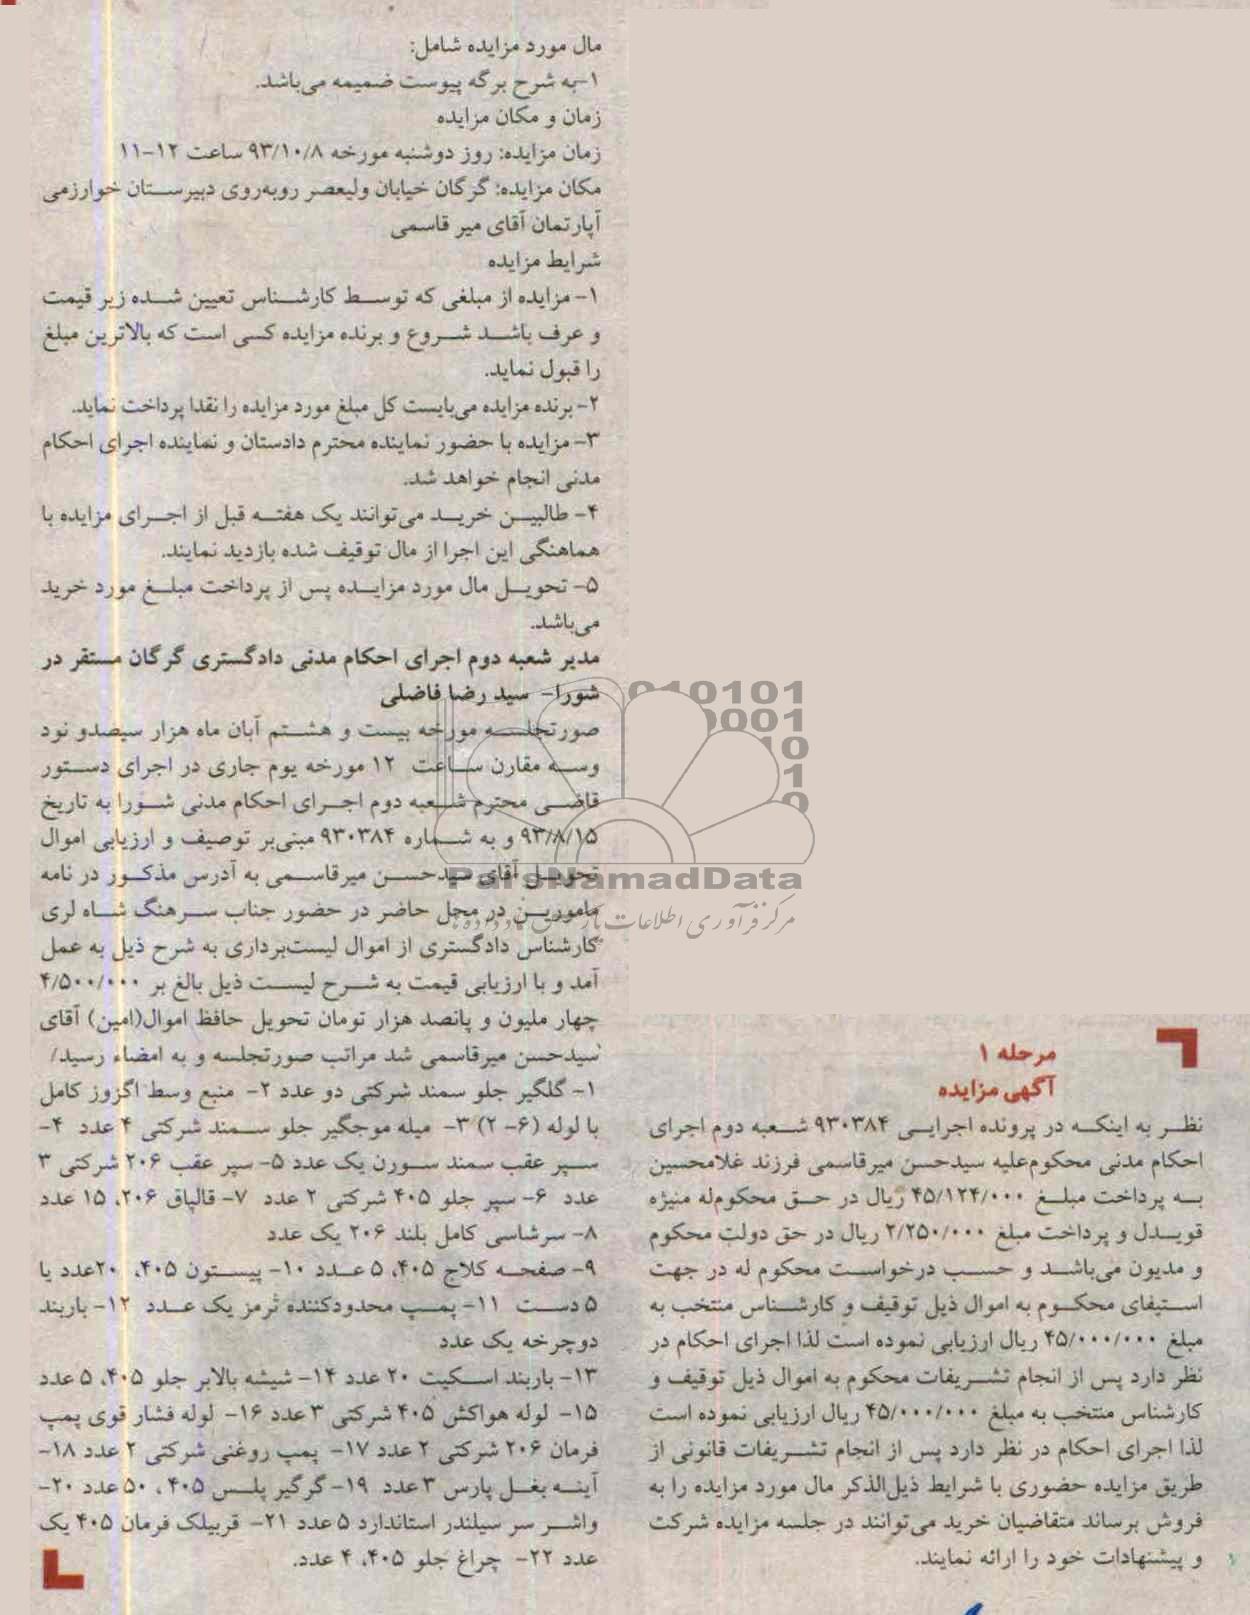 مرحله ۱
آگهی مزایده
نظر به اینکه در پرونده اجرایی ۹۳۰۳۸۴ شعبه دوم اجرای
احکام مدنی محکوم‌علیه سیدحسن میرقاسمی فرزند غلامحسین
به پرداخت مبلغ ۴۵/۱۲۴/۰۰۰ ریال در حق محکوم‌له منیژه
قویدل و پرداخت مبلغ ۲/۲۵۰/۰۰۰ ریال در حق دولت محکوم
و مدیون می‌باشد و حسب درخواست محکوم له در جهت
استیفای محکوم به اموال ذیل توقیف و کارشناس منتخب به
مبلغ ۴۵/۰۰۰/۰۰۰ ریال ارزیابی نموده است لذا اجرای احکام در
نظر دارد پس از انجام تشریفات محکوم به اموال ذیل توقیف و
کارشناس منتخب به مبلغ ۴۵/۰۰۰/۰۰۰ ریال ارزیابی نموده است
لذا اجرای احکام در نظر دارد پس از انجام تشریفات قانونی از
طریق مزایده حضوری با شرایط ذیل‌الذکر مال مورد مزایده را به
فروش برساند متقاضیان خرید می‌توانند در جلسه مزایده شرکت
و پیشنهادات خود را ارائه نمایند.
مال مورد مزایده شامل:
۱-به شرح برگه پیوست ضمیمه می‌باشد.
زمان و مکان مزایده
زمان مزایده: روز دوشنبه مورخه ۹۳/۱۰/۸ ساعت ۱۲-۱۱
مکان مزایده: گرگان خیابان ولیعصر روبه‌روی دبیرستان خوارزمی
آپارتمان آقای میر قاسمی
شرایط مزایده
۱- مزایده از مبلغی که توسط کارشناس تعیین شده زیر قیمت
و عرف باشد شروع و برنده مزایده کسی است که بالاترین مبلغ
را قبول نماید.
۲- برنده مزایده می‌بایست کل مبلغ مورد مزایده را نقدا پرداخت نماید.
۳- مزایده با حضور نماینده محترم دادستان و نماینده اجرای احکام
مدنی انجام خواهد شد.
۴- طالبین خرید می‌توانند یک هفته قبل از اجرای مزایده با
هماهنگی این اجرا از مال توقیف شده بازدید نمایند.
۵- تحویل مال مورد مزایده پس از پرداخت مبلغ مورد خرید
می‌باشد.
مدیر شعبه دوم اجرای احکام مدنی دادگستری گرگان مستقر در
شورا- سید رضا فاضلی
صورتجلسه مورخه بیست و هشتم آبان ماه هزار سیصدو نود
وسه مقارن ساعت ۱۲ مورخه یوم جاری در اجرای دستور
قاضی محترم شعبه دوم اجرای احکام مدنی شورا به تاریخ
۹۳/۸/۱۵ و به شماره ۹۳۰۳۸۴ مبنی‌بر توصیف و ارزیابی اموال
تحویل آقای سیدحسن میرقاسمی به آدرس مذکور در نامه
مامورین در محل حاضر در حضور جناب سرهنگ شاه لری
کارشناس دادگستری از اموال لیست‌برداری به شرح ذیل به عمل
آمد و با ارزیابی قیمت به شرح لیست ذیل بالغ بر ۴/۵۰۰/۰۰۰
چهار ملیون و پانصد هزار تومان تحویل حافظ اموال(امین) آقای
سیدحسن میرقاسمی شد مراتب صورتجلسه و به امضاء رسید/
۱- گلگیر جلو سمند شرکتی دو عدد ۲- منبع وسط اگزوز کامل
با لوله (۶- ۲) ۳- میله موجگیر جلو سمند شرکتی ۴ عدد ۴-
سپر عقب سمند سورن یک عدد ۵- سپر عقب ۲۰۶ شرکتی ۳
عدد ۶- سپر جلو ۴۰۵ شرکتی ۲ عدد ۷- قالپاق ۲۰۶، ۱۵ عدد
۸- سرشاسی کامل بلند ۲۰۶ یک عدد
۹- صفحه کلاج ۴۰۵، ۵ عدد ۱۰- پیستون ۴۰۵، ۲۰عدد یا
۵ دست ۱۱- پمپ محدودکننده ترمز یک عدد ۱۲- باربند
دوچرخه یک عدد
۱۳- باربند اسکیت ۲۰ عدد ۱۴- شیشه بالابر جلو ۴۰۵، ۵ عدد
۱۵- لوله هواکش ۴۰۵ شرکتی ۳ عدد ۱۶- لوله فشار قوی پمپ
فرمان ۲۰۶ شرکتی ۲ عدد ۱۷- پمپ روغنی شرکتی ۲ عدد ۱۸-
آینه بغل پارس ۳ عدد ۱۹- گرگیر پلس ۴۰۵ ، ۵۰ عدد ۲۰-
واشر سر سیلندر استاندارد ۵ عدد ۲۱- قربیلک فرمان ۴۰۵ یک
عدد ۲۲- چراغ جلو ۴۰۵، ۴ عدد.
ParsNamadData